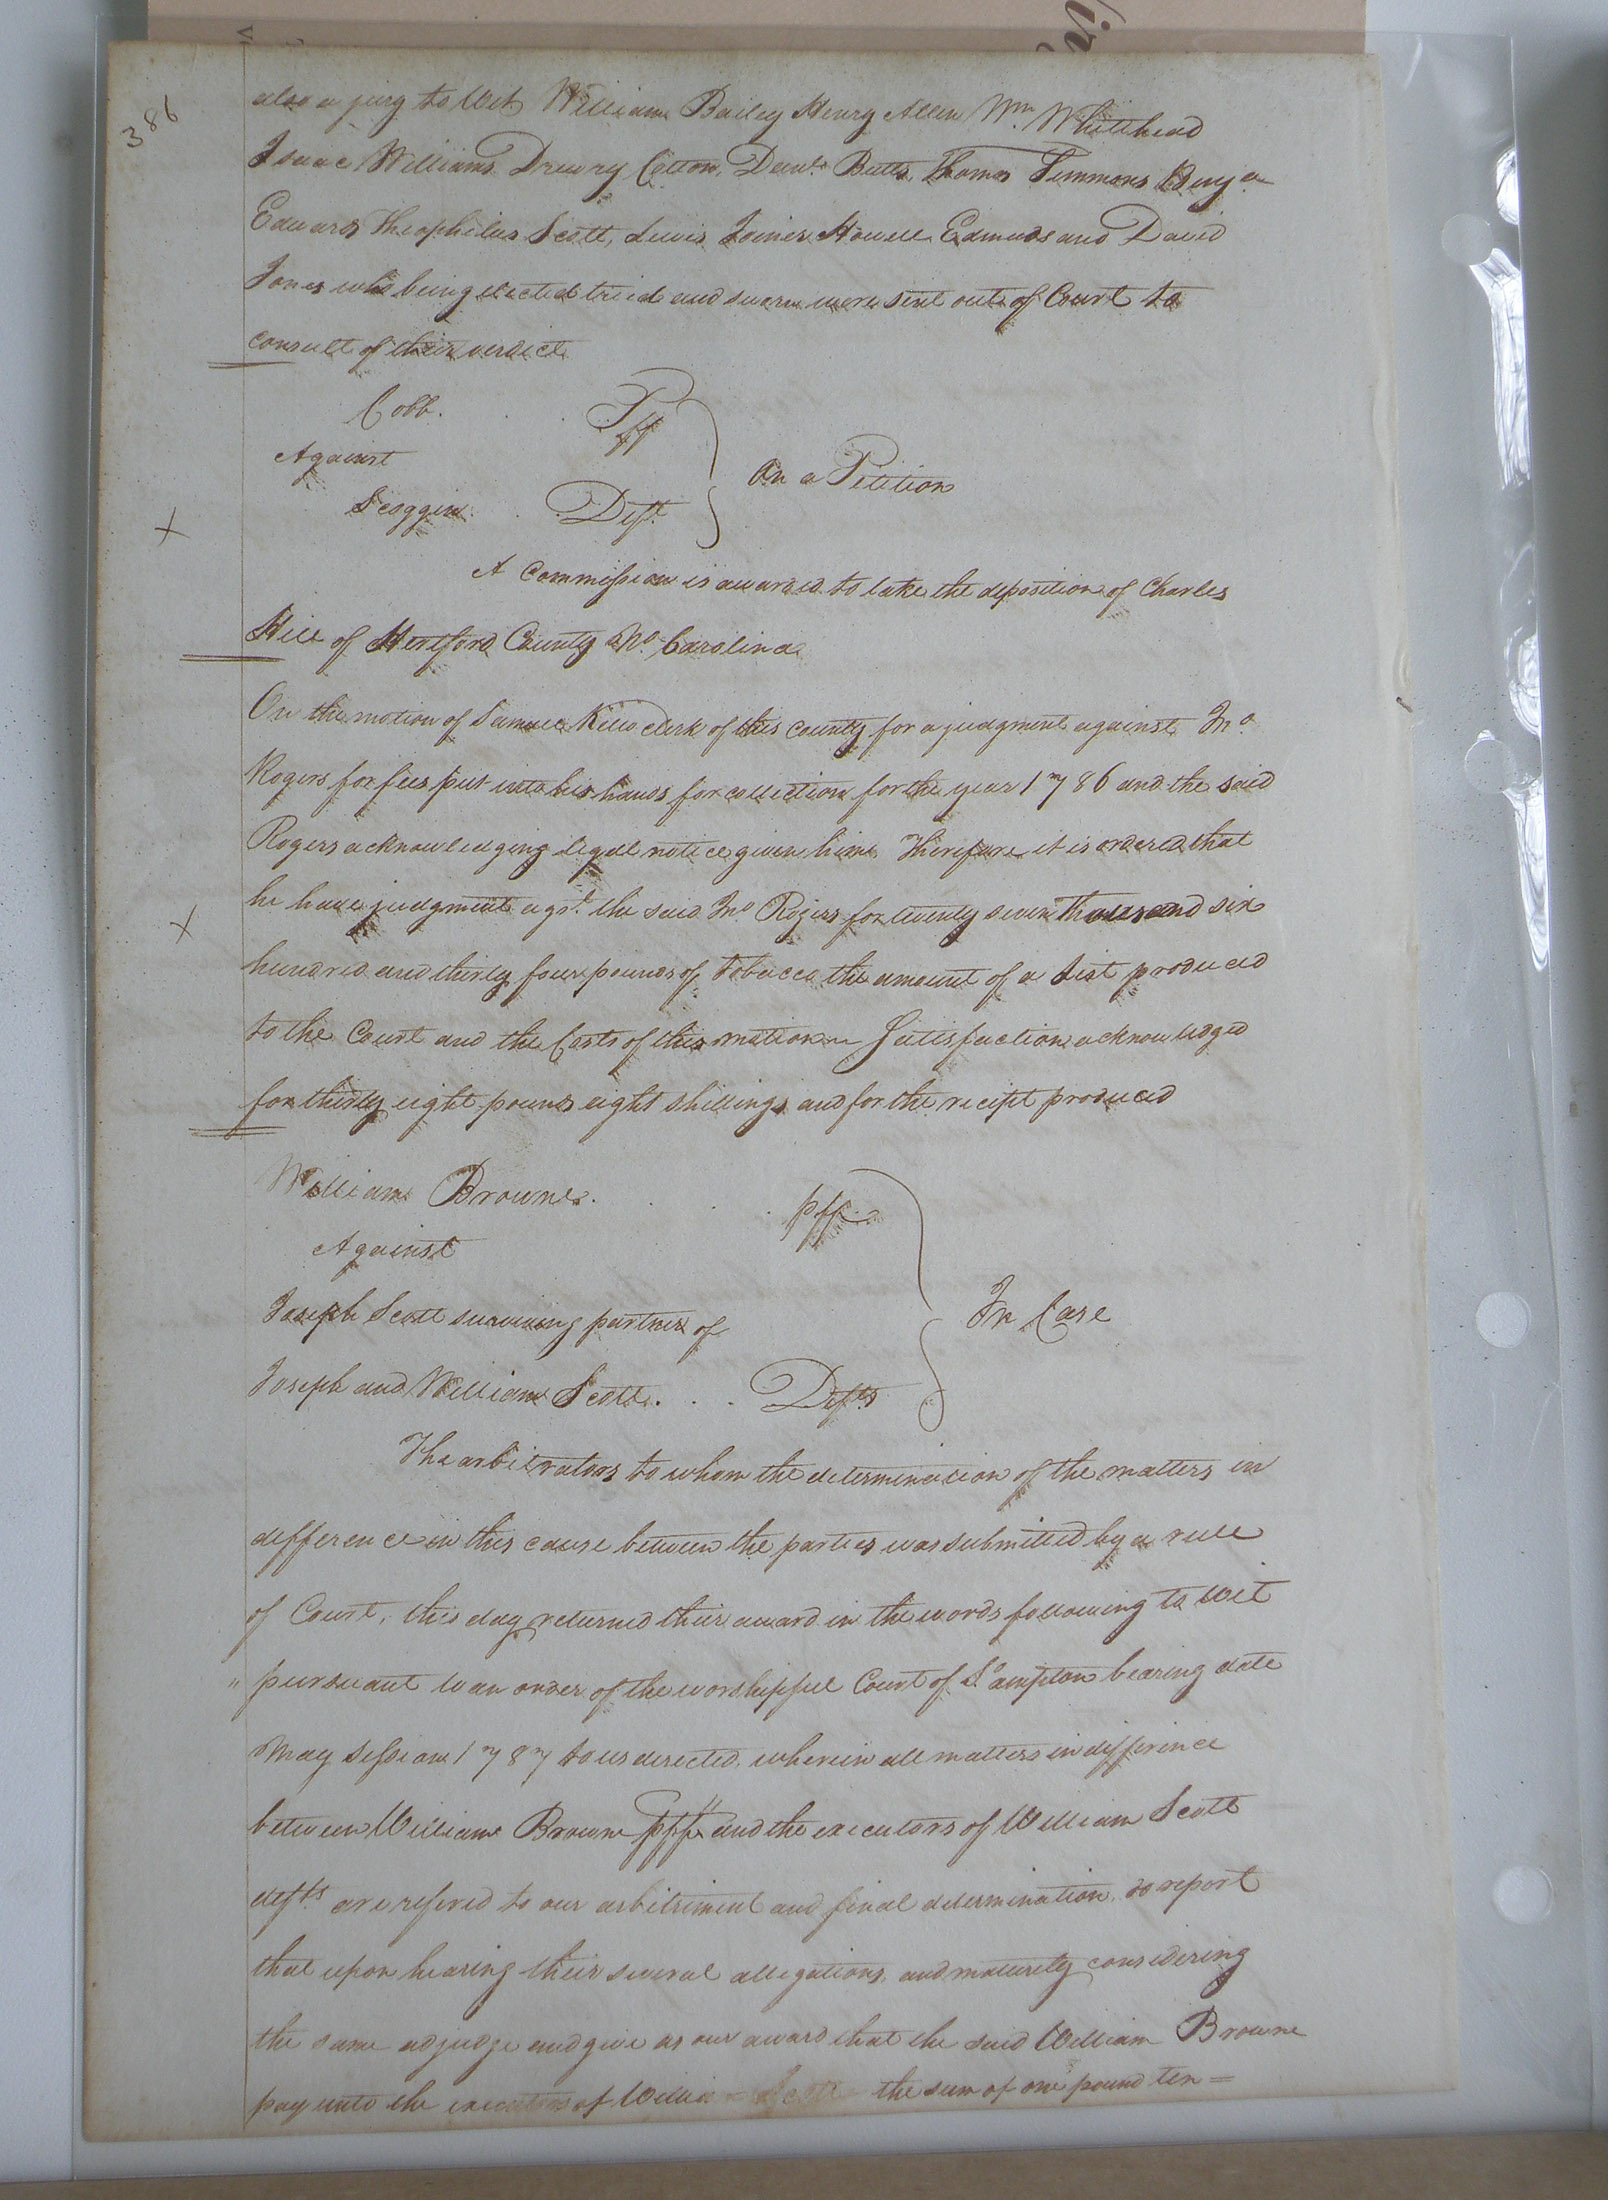 386
also a jury to Wit William Bailey Henry Allen Wm. Whitehead
Isaac Williams Drewry Cotton, Danl. Butts, Thomas Timmons Benja
Edwards Theophilus Scott, Lewis Joiner Howell Edmuds and David
Jones who being elected tried and sworn were sent out of Court to
consult of their verdict
Cobb. . . Plff
Against
On a Petition
Scoggin . . Deft.
A Commission is awarded to take the deposition of Charles
Hill of Hertford County No. Carolina
On the motion of Samuel Kello clerk of this county for a judgment against Jno.
Rogers for fees put into his hands for collection for the year 1786 and the said
Rogers acknowledging legal notice given him Therefore it is ordered that
he have judgment agst. the said Jno Rogers for twenty seven thousand six
hundred and thirty four pounds of Tobacco the amount of a List produced
to the Court and the Costs of this motion Satisfaction acknowledged
for thirty eight pounds eight shillings and for the recipt produced
William Browne . . . plff
Against
Joseph Scott surviving partner of
In Case
Joseph and William Scott . . . Defts
The arbitrators to whom the determination of the matters in
defference in this cause between the parties was submitted by a rule
of Court, this day returned their award in the words following to Wit
" pursuant to an order of the worshipful Court of So.ampton bearing date
May Session 1787 to us directed, wherein all matters in difference
between William Browne plff and the executors of William Scott
defts. are refered to our arbitriment and final determination, do report
that upon hearing their several allegations, and maturely considering
the same adjudge and give as our award that the said William Browne
pay unto the executors of William Scott the sum of one pound ten =